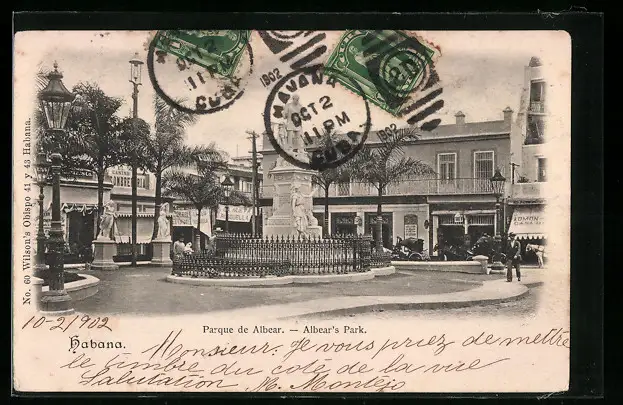 OCT 2
11 PM
CUBA
1902
HAVANA
OCT 2
11 PM
CUBA
1902
No. 60 Wilson's Obispo 41 y 43 Habana.
10-2/1902
Parque de Albear. — Albear's Park.
Habana.
Monsieur. Je vous priez de mettre
le timbre du coté de la vue
Salutation M. Montéjo